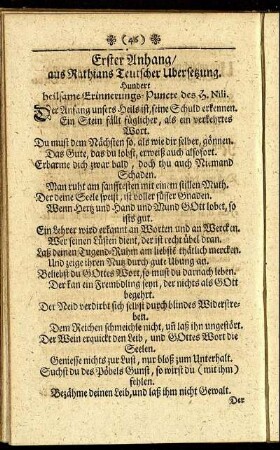 (46)
Erster Anhang/
aus Rathians Teutscher Ubersetzung.
Hundert
heilsame Erinnerungs-Puncte des H. Nili.
Der Anfang unsers Heils ist, seine Schuld erkennen.
Ein Stein fällt füglicher, als ein verkehrtes
Wort.
Du must dem Nächsten so, als wie dir selber, gönnen.
Das Gute, das du lobst, erweiß auch alsofort.
Erbarme dich zwar bald, doch thu auch Niemand
Schaden.
Man ruht am sanfftesten mit einem stillen Muth.
Der deine Seele speist, ist voller süsser Gnaden.
Wenn Hertz und Hand und Mund GOtt lobet, so
ists gut.
Ein Lehrer wird erkannt an Worten und an Wercken.
Wer seinen Lüsten dient, der ist recht übel dran.
Laß deinen Tugend-Ruhm am liebsten thätlich mercken.
Und zeige ihren Nutz durch gute Übung an.
Beliebst du GOttes Wort, so must du darnach leben.
Der kan ein Frembdling seyn, der nichts als GOtt
begehrt.
Der Neid verdirbt sich selbst durch blindes Widerstre-
ben.
Dem Reichen schmeichle nicht, uñ laß ihn ungestört.
Der Wein erquickt den Leib, und GOttes Wort die
Seelen.
Geniesse nichts zur Lust, nur bloß zum Unterhalt.
Suchst du des Pöbels Gunst, so wirst du (mit ihm)
fehlen.
Bezähme deinen Leib, und laß ihm nicht Gewalt.
Der